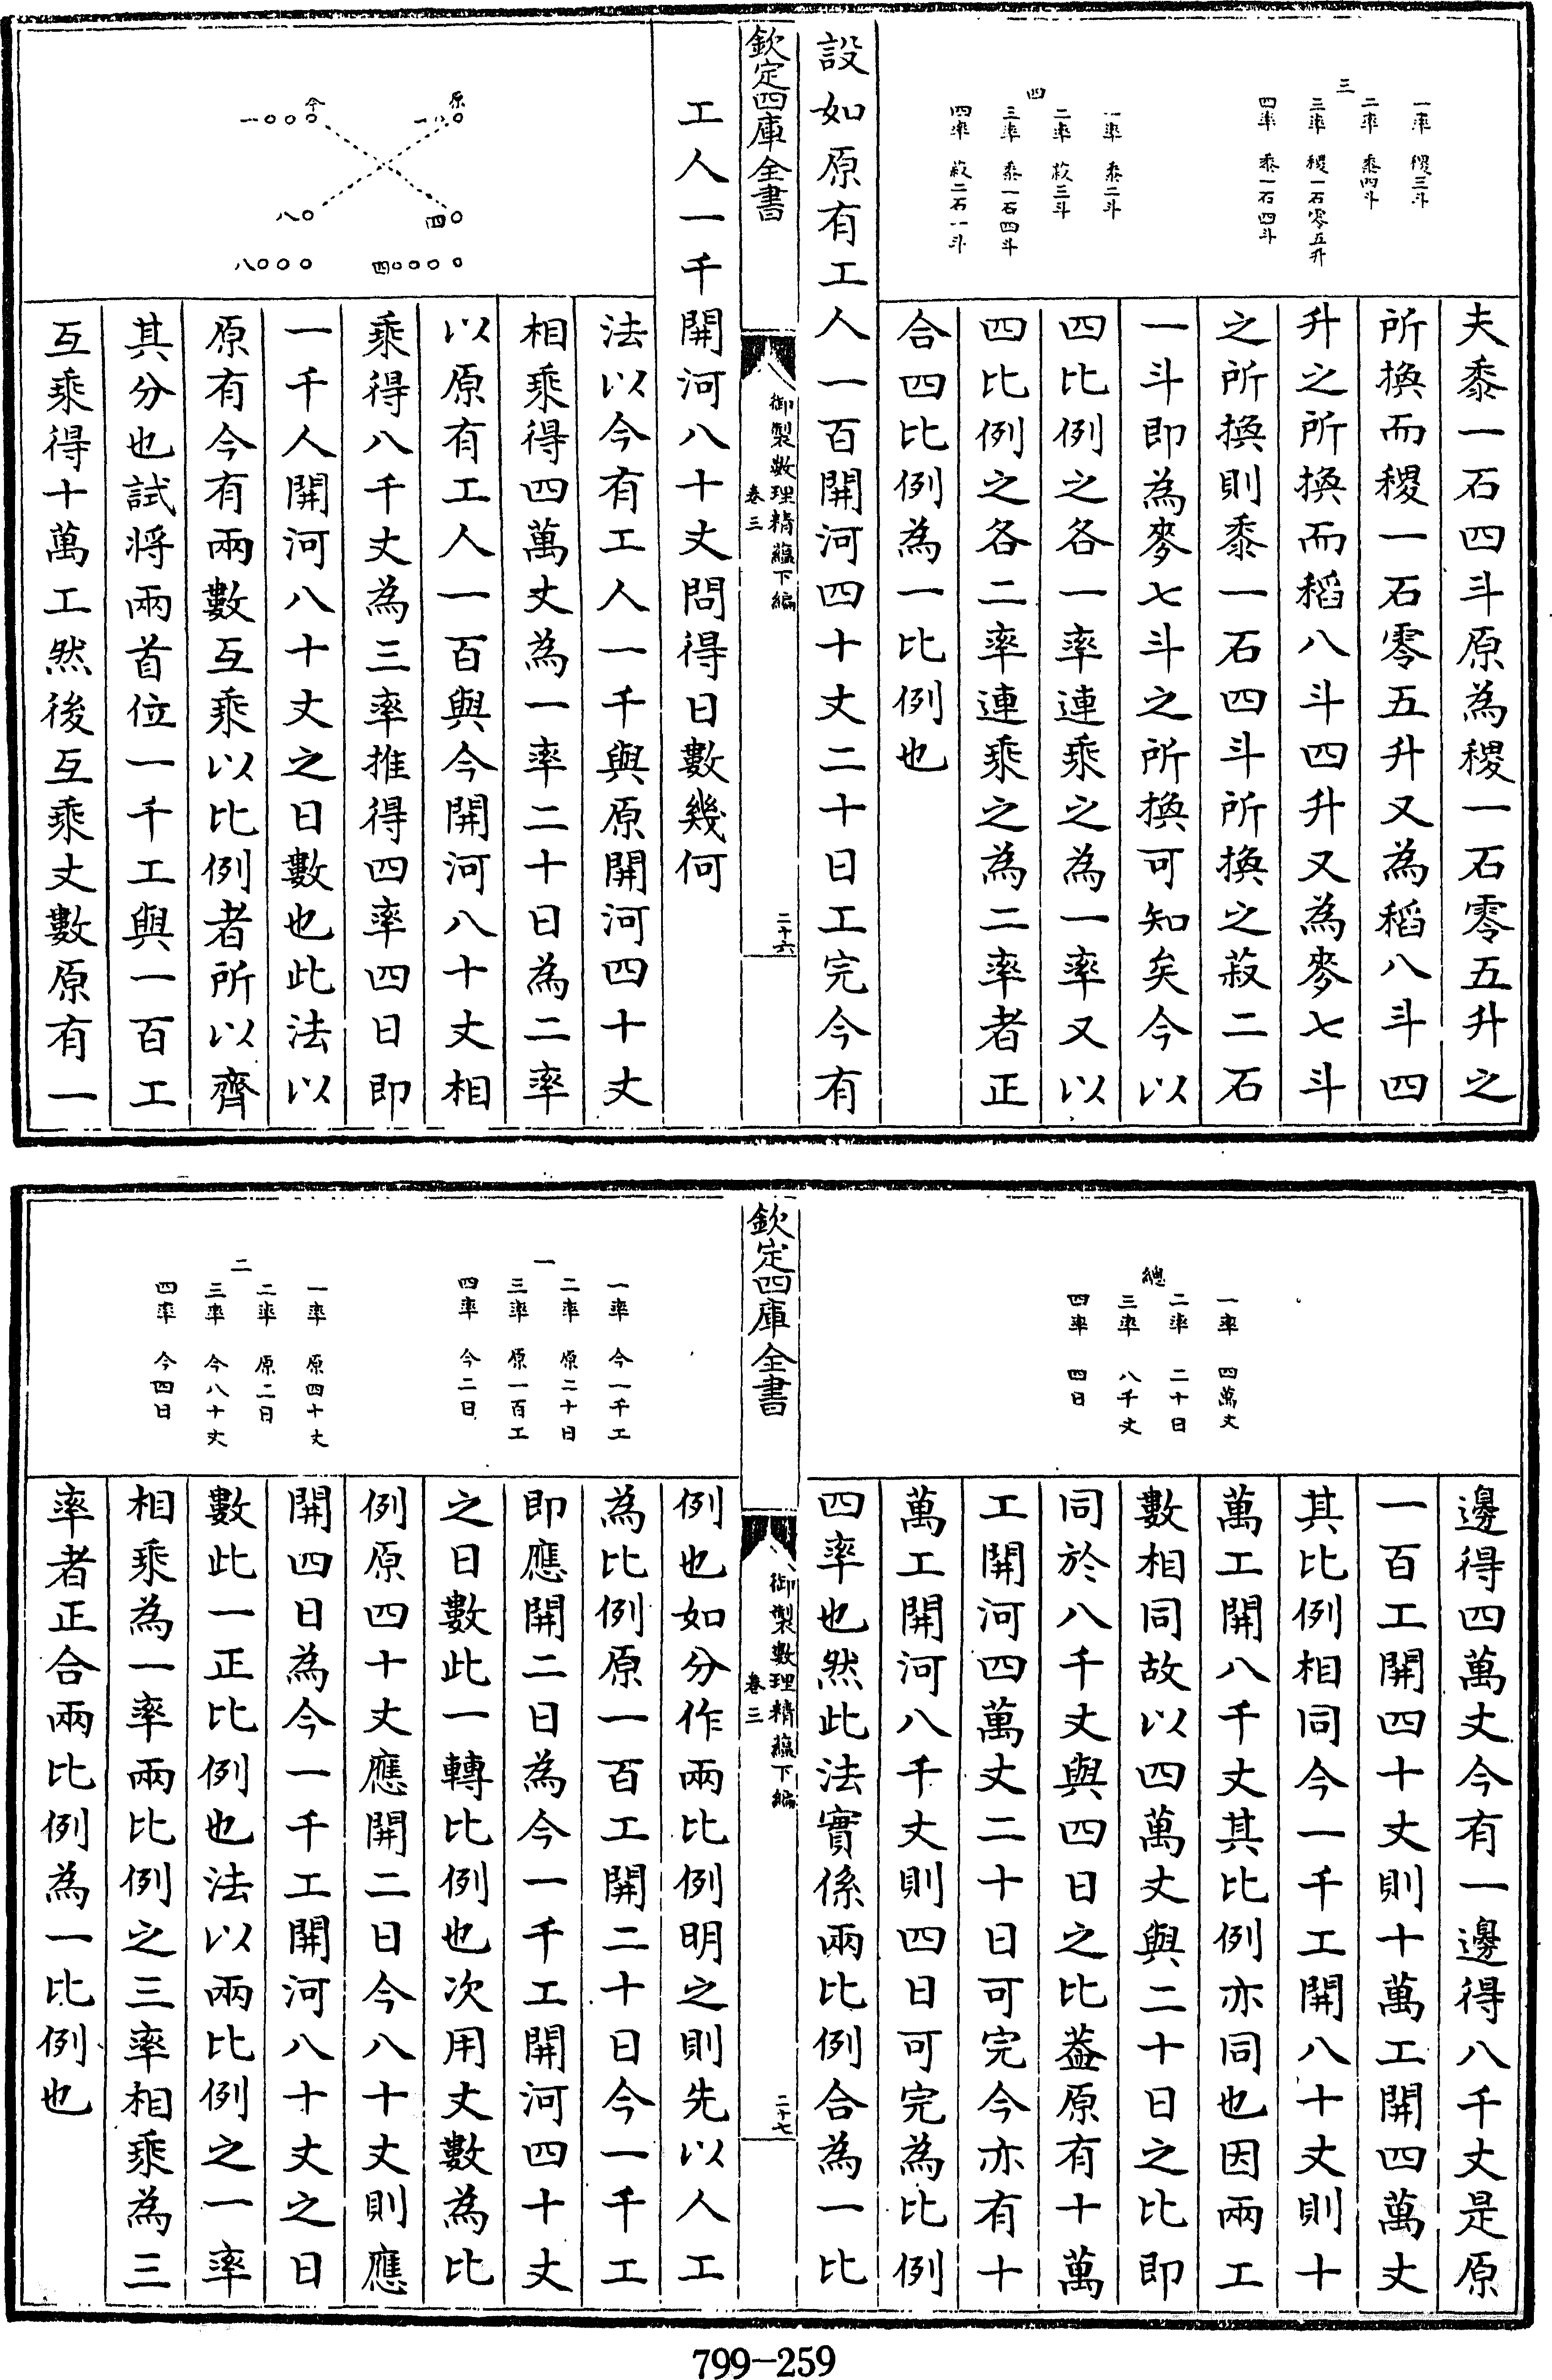 三
一率　稷三斗
二率　黍四斗
三率　稷一石零五升
四率　黍一石四斗
四
一率　黍二斗
二率　菽三斗
三率　黍一石四斗
四率　菽二石一斗
夫黍一石四斗原為稷一石零五升之
所換而稷一石零五升又為稻八斗四
升之所換而稻八斗四升又為麥七斗
之所換則黍一石四斗所換之菽二石
一斗即為麥七斗之所換可知矣今以
四比例之各一率連乘之為一率又以
四比例之各二率連乘之為二率者正
合四比例為一比例也
設如原有工人一百開河四十丈二十日工完今有
欽定四庫全書
御製數理精蘊下編
卷三
二十六
工人一千開河八十丈問得日數幾何
原　一〇〇
今　一〇〇〇
四〇
八〇
四〇〇〇〇
八〇〇〇
法以今有工人一千與原開河四十丈
相乘得四萬丈為一率二十日為二率
以原有工人一百與今開河八十丈相
乘得八千丈為三率推得四率四日即
一千人開河八十丈之日數也此法以
原有今有兩數互乘以比例者所以齊
其分也試將兩首位一千工與一百工
互乘得十萬工然後互乘丈數原有一
總
一率　四萬丈
二率　二十日
三率　八千丈
四率　四日
邊得四萬丈今有一邊得八千丈是原
一百工開四十丈則十萬工開四萬丈
其比例相同今一千工開八十丈則十
萬工開八千丈其比例亦同也因兩工
數相同故以四萬丈與二十日之比即
同於八千丈與四日之比葢原有十萬
工開河四萬丈二十日可完今亦有十
萬工開河八千丈則四日可完為比例
四率也然此法實係兩比例合為一比
欽定四庫全書
御製數理精蘊下編
卷三
二十七
一
一率　今一千工
二率　原二十日
三率　原一百工
四率　今二日
二
一率　原四十丈
二率　原二日
三率　今八十丈
四率　今四日
例也如分作兩比例明之則先以人工
為比例原一百工開二十日今一千工
即應開二日為今一千工開河四十丈
之日數此一轉比例也次用丈數為比
例原四十丈應開二日今八十丈則應
開四日為今一千工開河八十丈之日
數此一正比例也法以兩比例之一率
相乘為一率兩比例之三率相乘為三
率者正合兩比例為一比例也
799-259